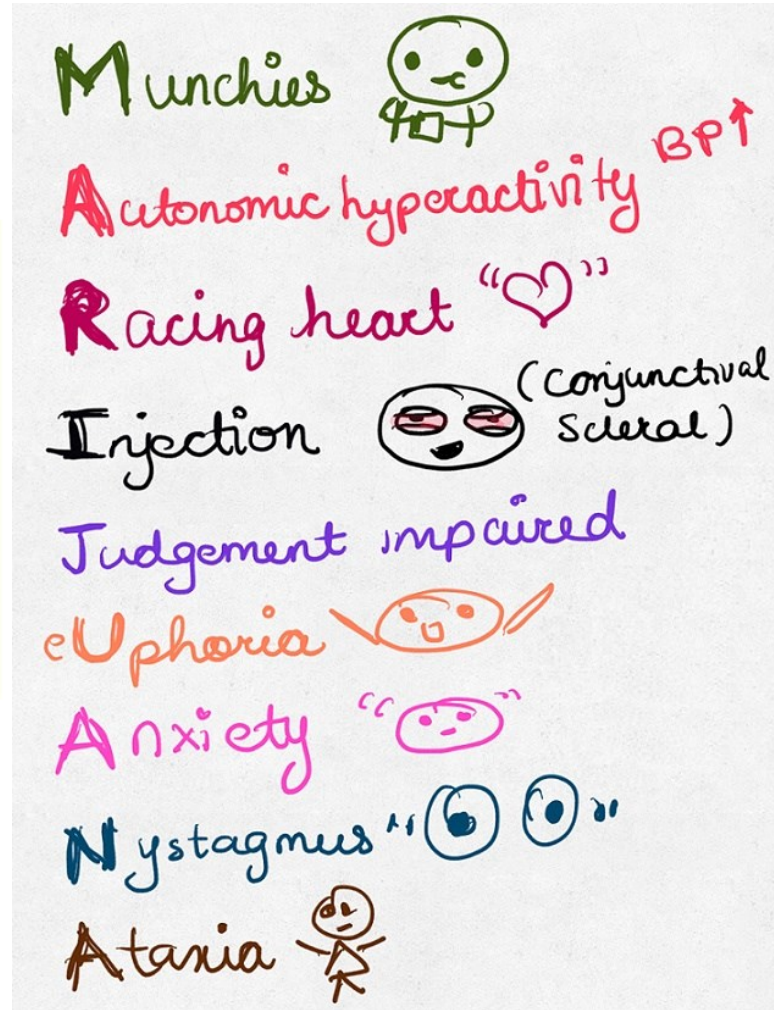 Munchies
Autonomic hyperactivity BP↑
Racing heart
Injection (conjunctival
scleral)
Judgement impaired
eUphoria
Anxiety
Nystagmus
Ataxia